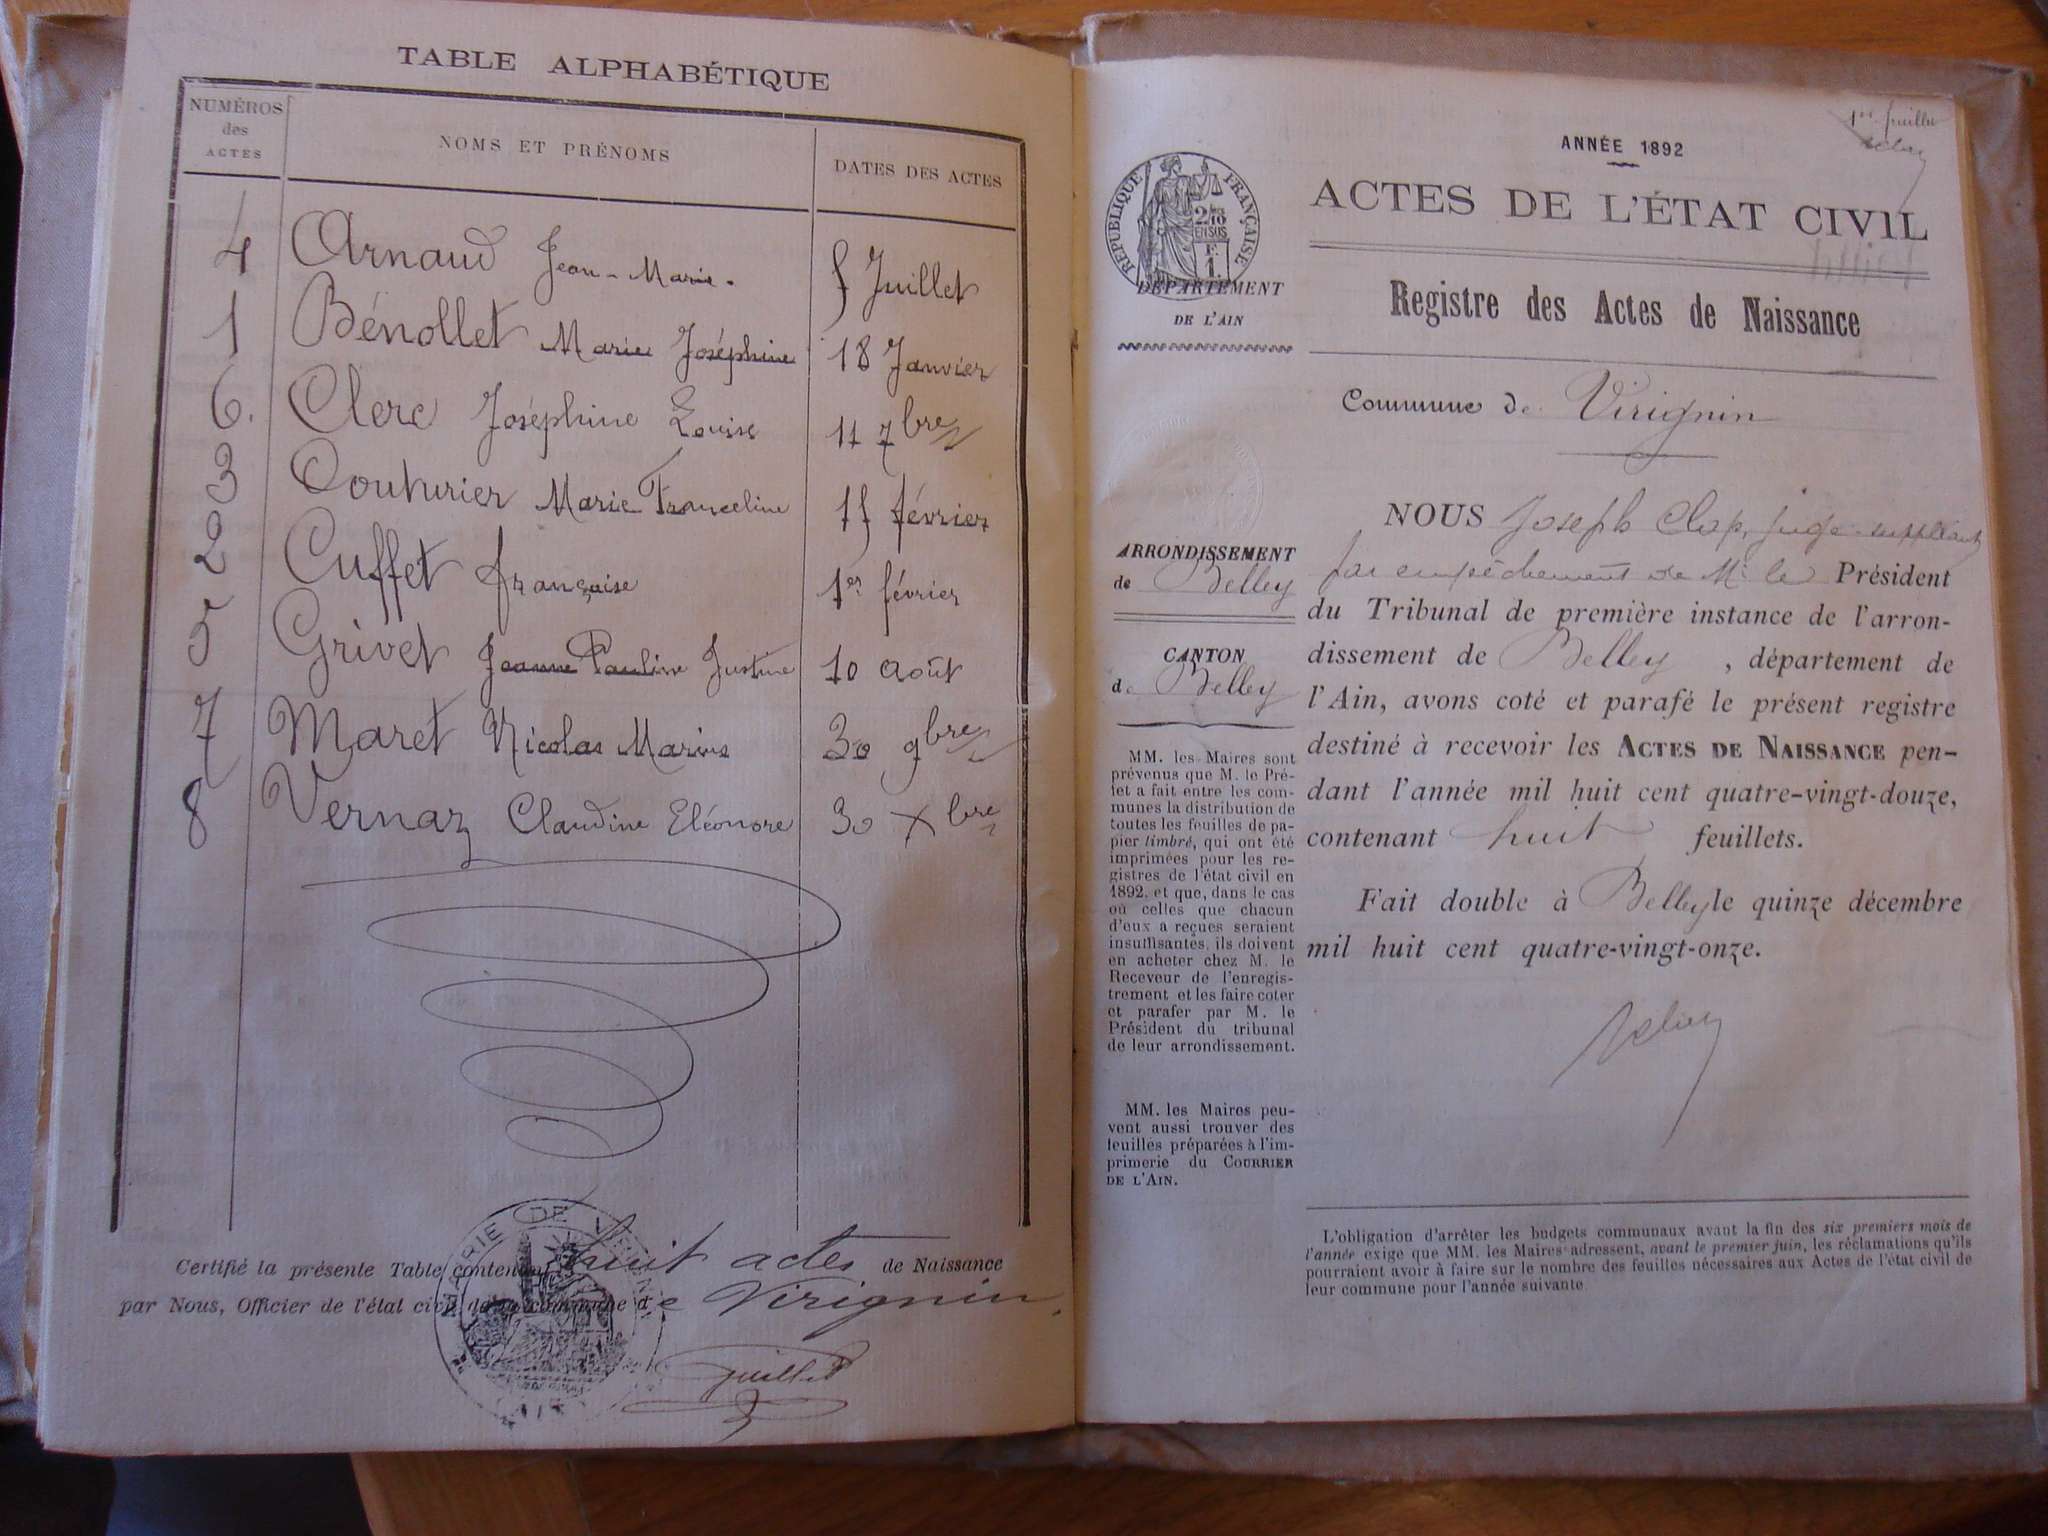 TABLE ALPHABÉTIQUE
NUMÉROS
des
ACTES
NOMS ET PRÉNOMS
DATES DES ACTES
4 Arnaud Jean-Marie. 5 Juillet
1 Bénollet Marie Joséphine 18 Janvier
6. Clerc Joséphine Louise 11 7bre
3 Couturier Marie Franceline 15 février
2 Cuffet françoise 1er février
5 Grivet Jeanne Pauline Justine 10 Août
7 Maret Nicolas Marius 30 9bre
8 Vernaz Claudine Eléonore 30 Xbre
Certifié la présente Table contenant huit actes de Naissance
par Nous, Officier de l'état civil de la commune de Virignin.
MAIRIE DE VIRIGNIN
AIN
1er feuillet
ANNÉE 1892
ACTES DE L'ÉTAT CIVIL
RÉPUBLIQUE FRANÇAISE
2/10
EN SUS
F.
1.
DÉPARTEMENT
DE L'AIN
Registre des Actes de Naissance
Commune de Virignin
ARRONDISSEMENT
de Belley
CANTON
de Belley
MM. les Maires sont
prévenus que M. le Pré-
fet a fait entre les com-
munes la distribution de
toutes les feuilles de pa-
pier timbré, qui ont été
imprimées pour les re-
gistres de l'état civil en
1892, et que, dans le cas
où celles que chacun
d'eux a reçues seraient
insuffisantes, ils doivent
en acheter chez M. le
Receveur de l'enregis-
trement et les faire coter
et parafer par M. le
Président du tribunal
de leur arrondissement.
MM. les Maires peu-
vent aussi trouver des
feuilles préparées à l'im-
primerie du COURRIER
DE L'AIN.
NOUS Joseph Clap, juge-suppléant
par empêchement de Mr le Président
du Tribunal de première instance de l'arron-
dissement de Belley, département de
l'Ain, avons coté et parafé le présent registre
destiné à recevoir les ACTES DE NAISSANCE pen-
dant l'année mil huit cent quatre-vingt-douze,
contenant huit feuillets.
Fait double à Belley le quinze décembre
mil huit cent quatre-vingt-onze.
L'obligation d'arrêter les budgets communaux avant la fin des six premiers mois de
l'année exige que MM. les Maires adressent, avant le premier juin, les réclamations qu'ils
pourraient avoir à faire sur le nombre des feuilles nécessaires aux Actes de l'état civil de
leur commune pour l'année suivante.